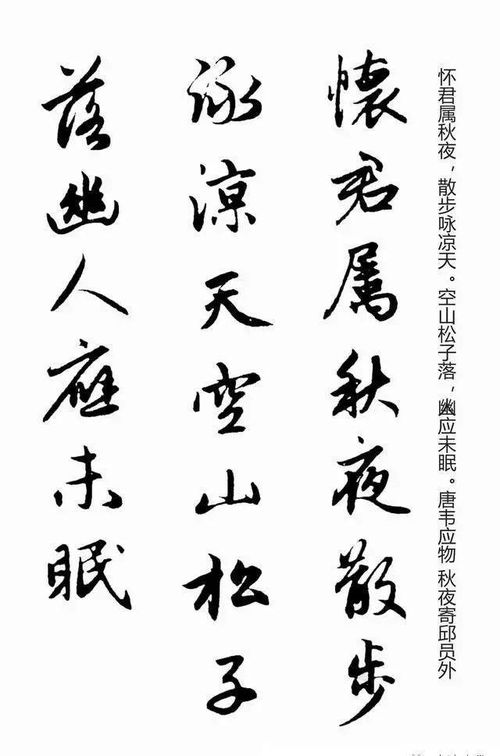 怀君属秋夜，散步咏凉天。空山松子落，幽应未眠。唐韦应物 秋夜寄邱员外
懷君属秋夜散步
詠涼天空山松子
落幽人應未眠